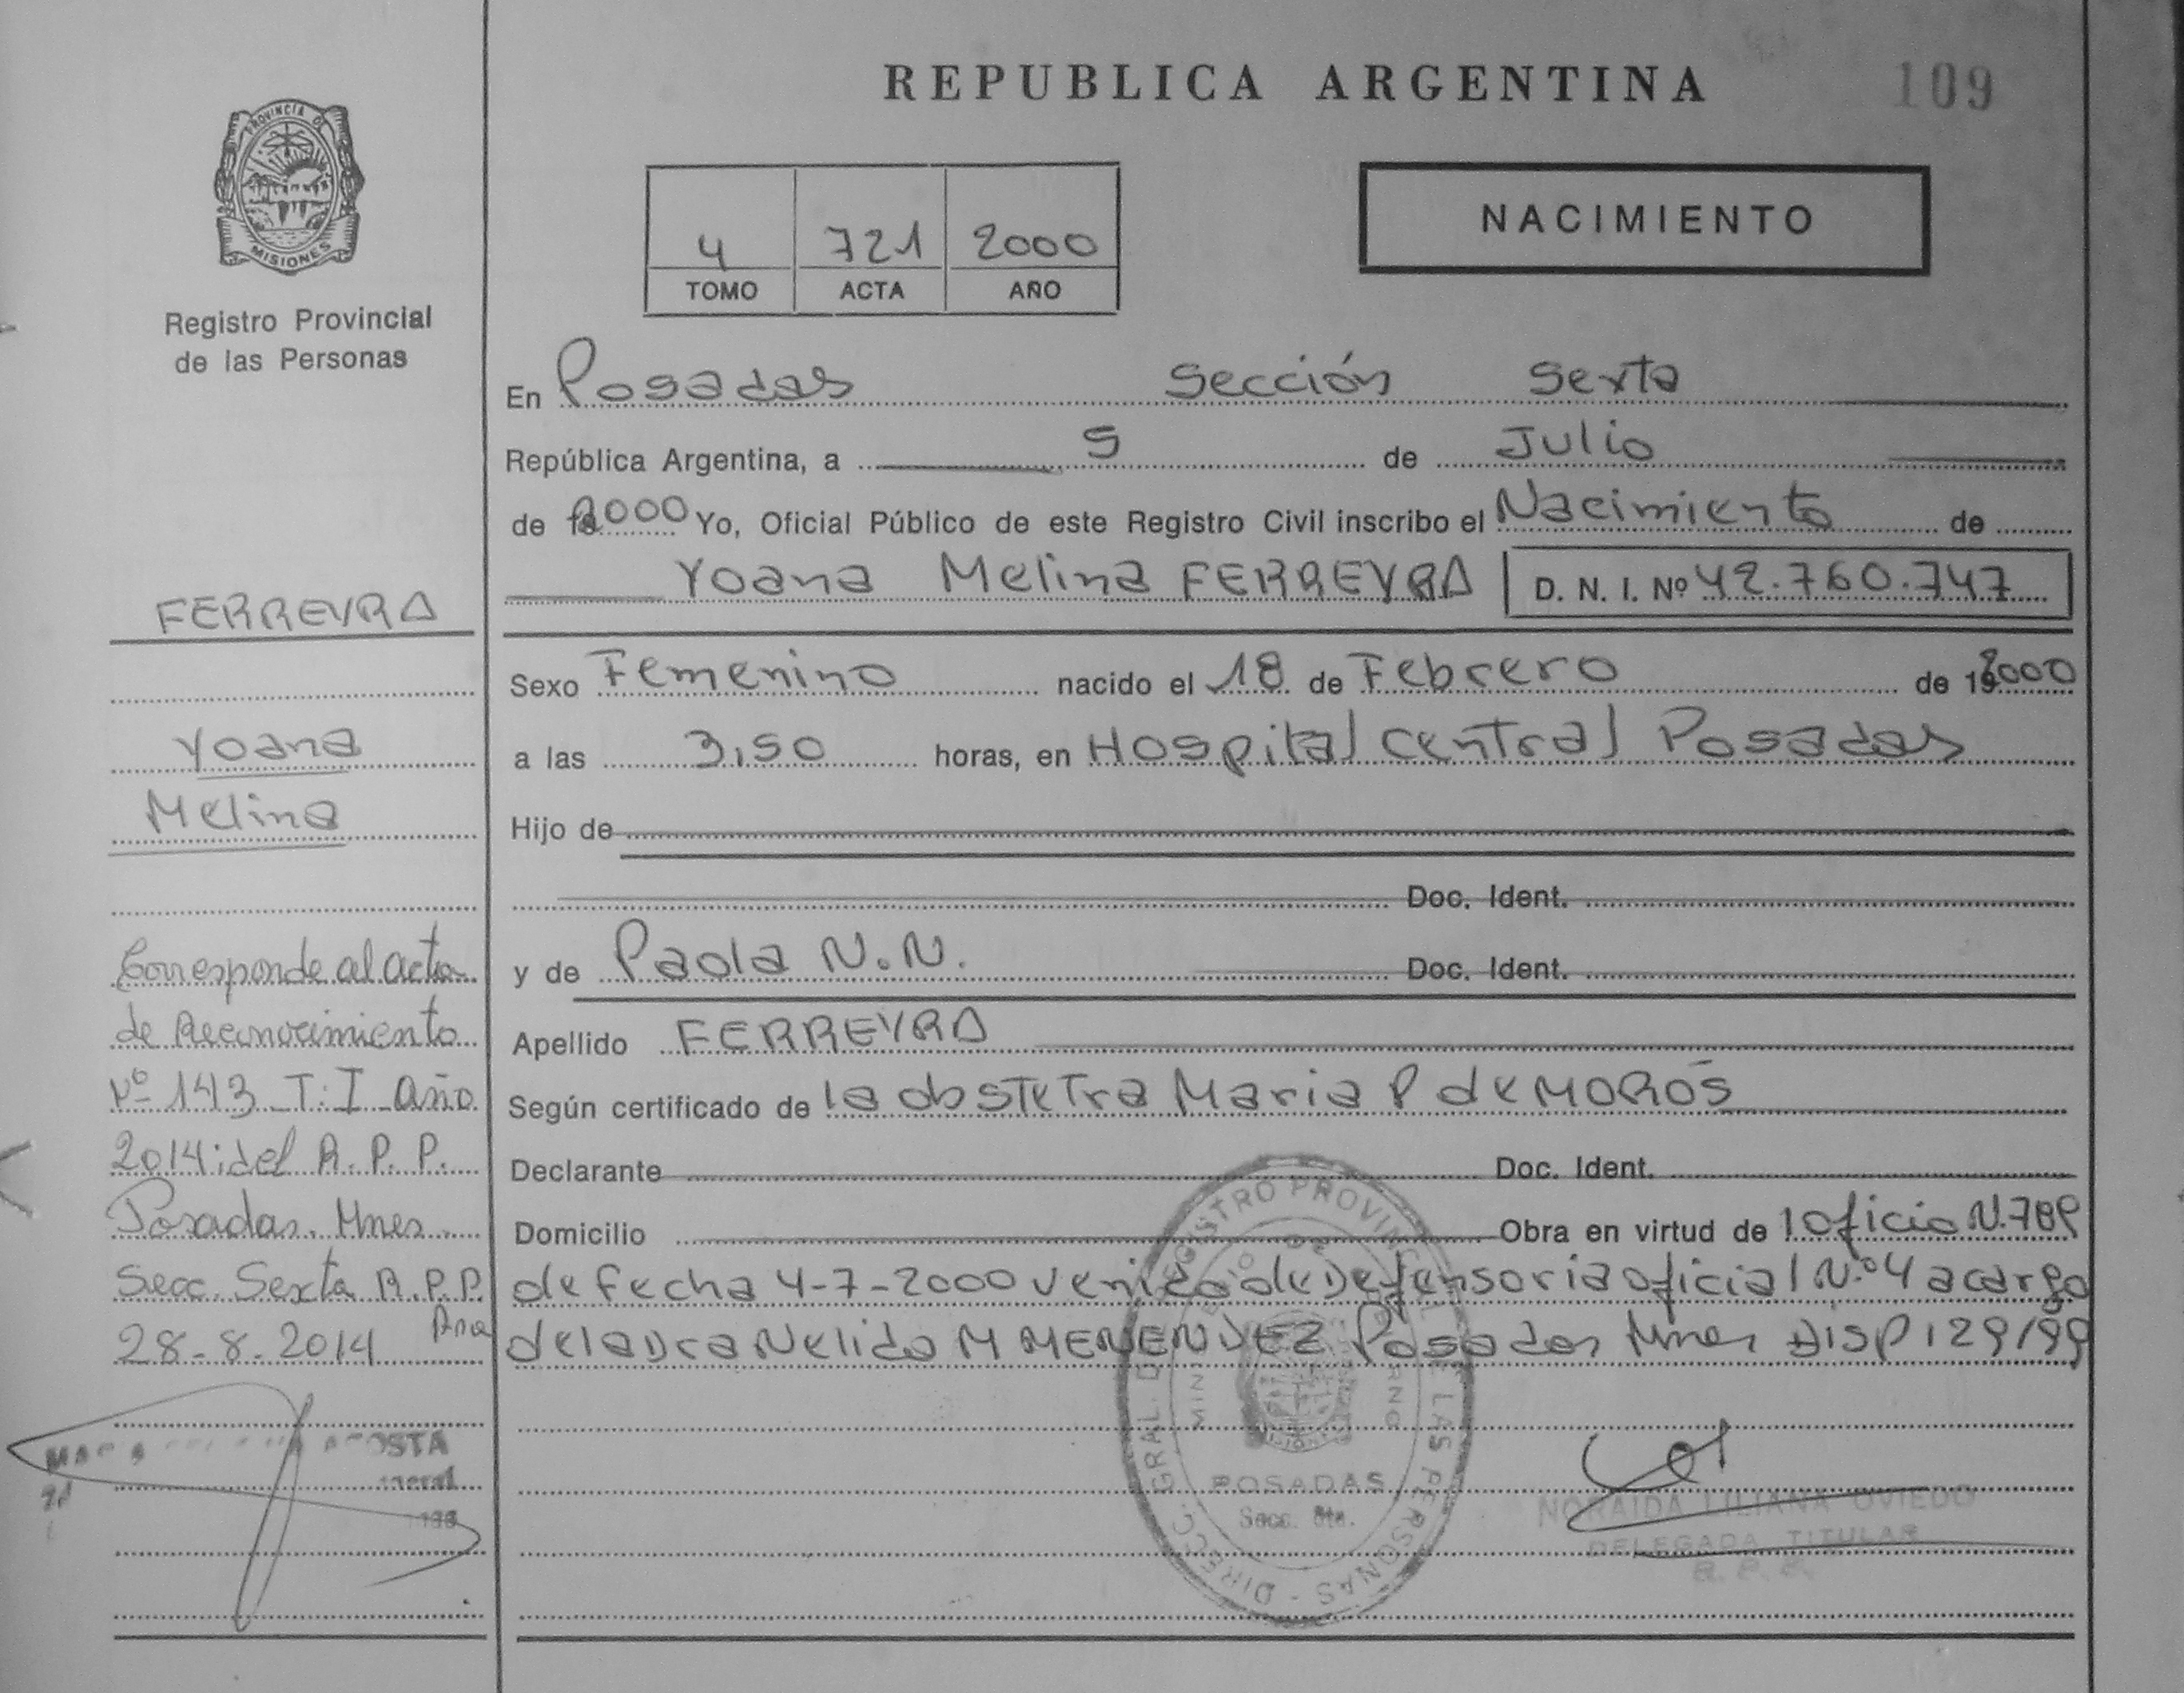 REPUBLICA ARGENTINA
109
PROVINCIA DE
MISIONES
Registro Provincial
de las Personas
NACIMIENTO
4 721 2000
TOMO ACTA AÑO
En Posadas Sección Sexta
República Argentina, a 5 de Julio
de 2000 Yo, Oficial Público de este Registro Civil inscribo el Nacimiento de
Yoana Melina FERREYRA D. N. I. Nº 42.760.747
Sexo Femenino nacido el 18 de Febrero de 2000
a las 3,50 horas, en Hospital Central Posadas
Hijo de
Doc. Ident.
y de Paola N.N. Doc. Ident.
Apellido FERREYRA
Según certificado de la obstetra Maria P de MOROS
Declarante Doc. Ident.
Domicilio Obra en virtud de
de fecha 4-7-2000 venido de Defensoria oficial N.º 4 a cargo
de la Dra Nelida M MENENDEZ Posadas Mnes DISP 129/99
FERREYRA
Yoana
Melina
Corresponde al acta
de Reconocimiento
Nº 143 T: I año
2014 del R.P.P.
Posadas. Mnes
Secc. Sexta R.P.P.
28-8-2014
ACOSTA
POSADAS
Secc. 6ta.
NORAIDA LILIANA OVIEDO
DELEGADA TITULAR
R. P. P.